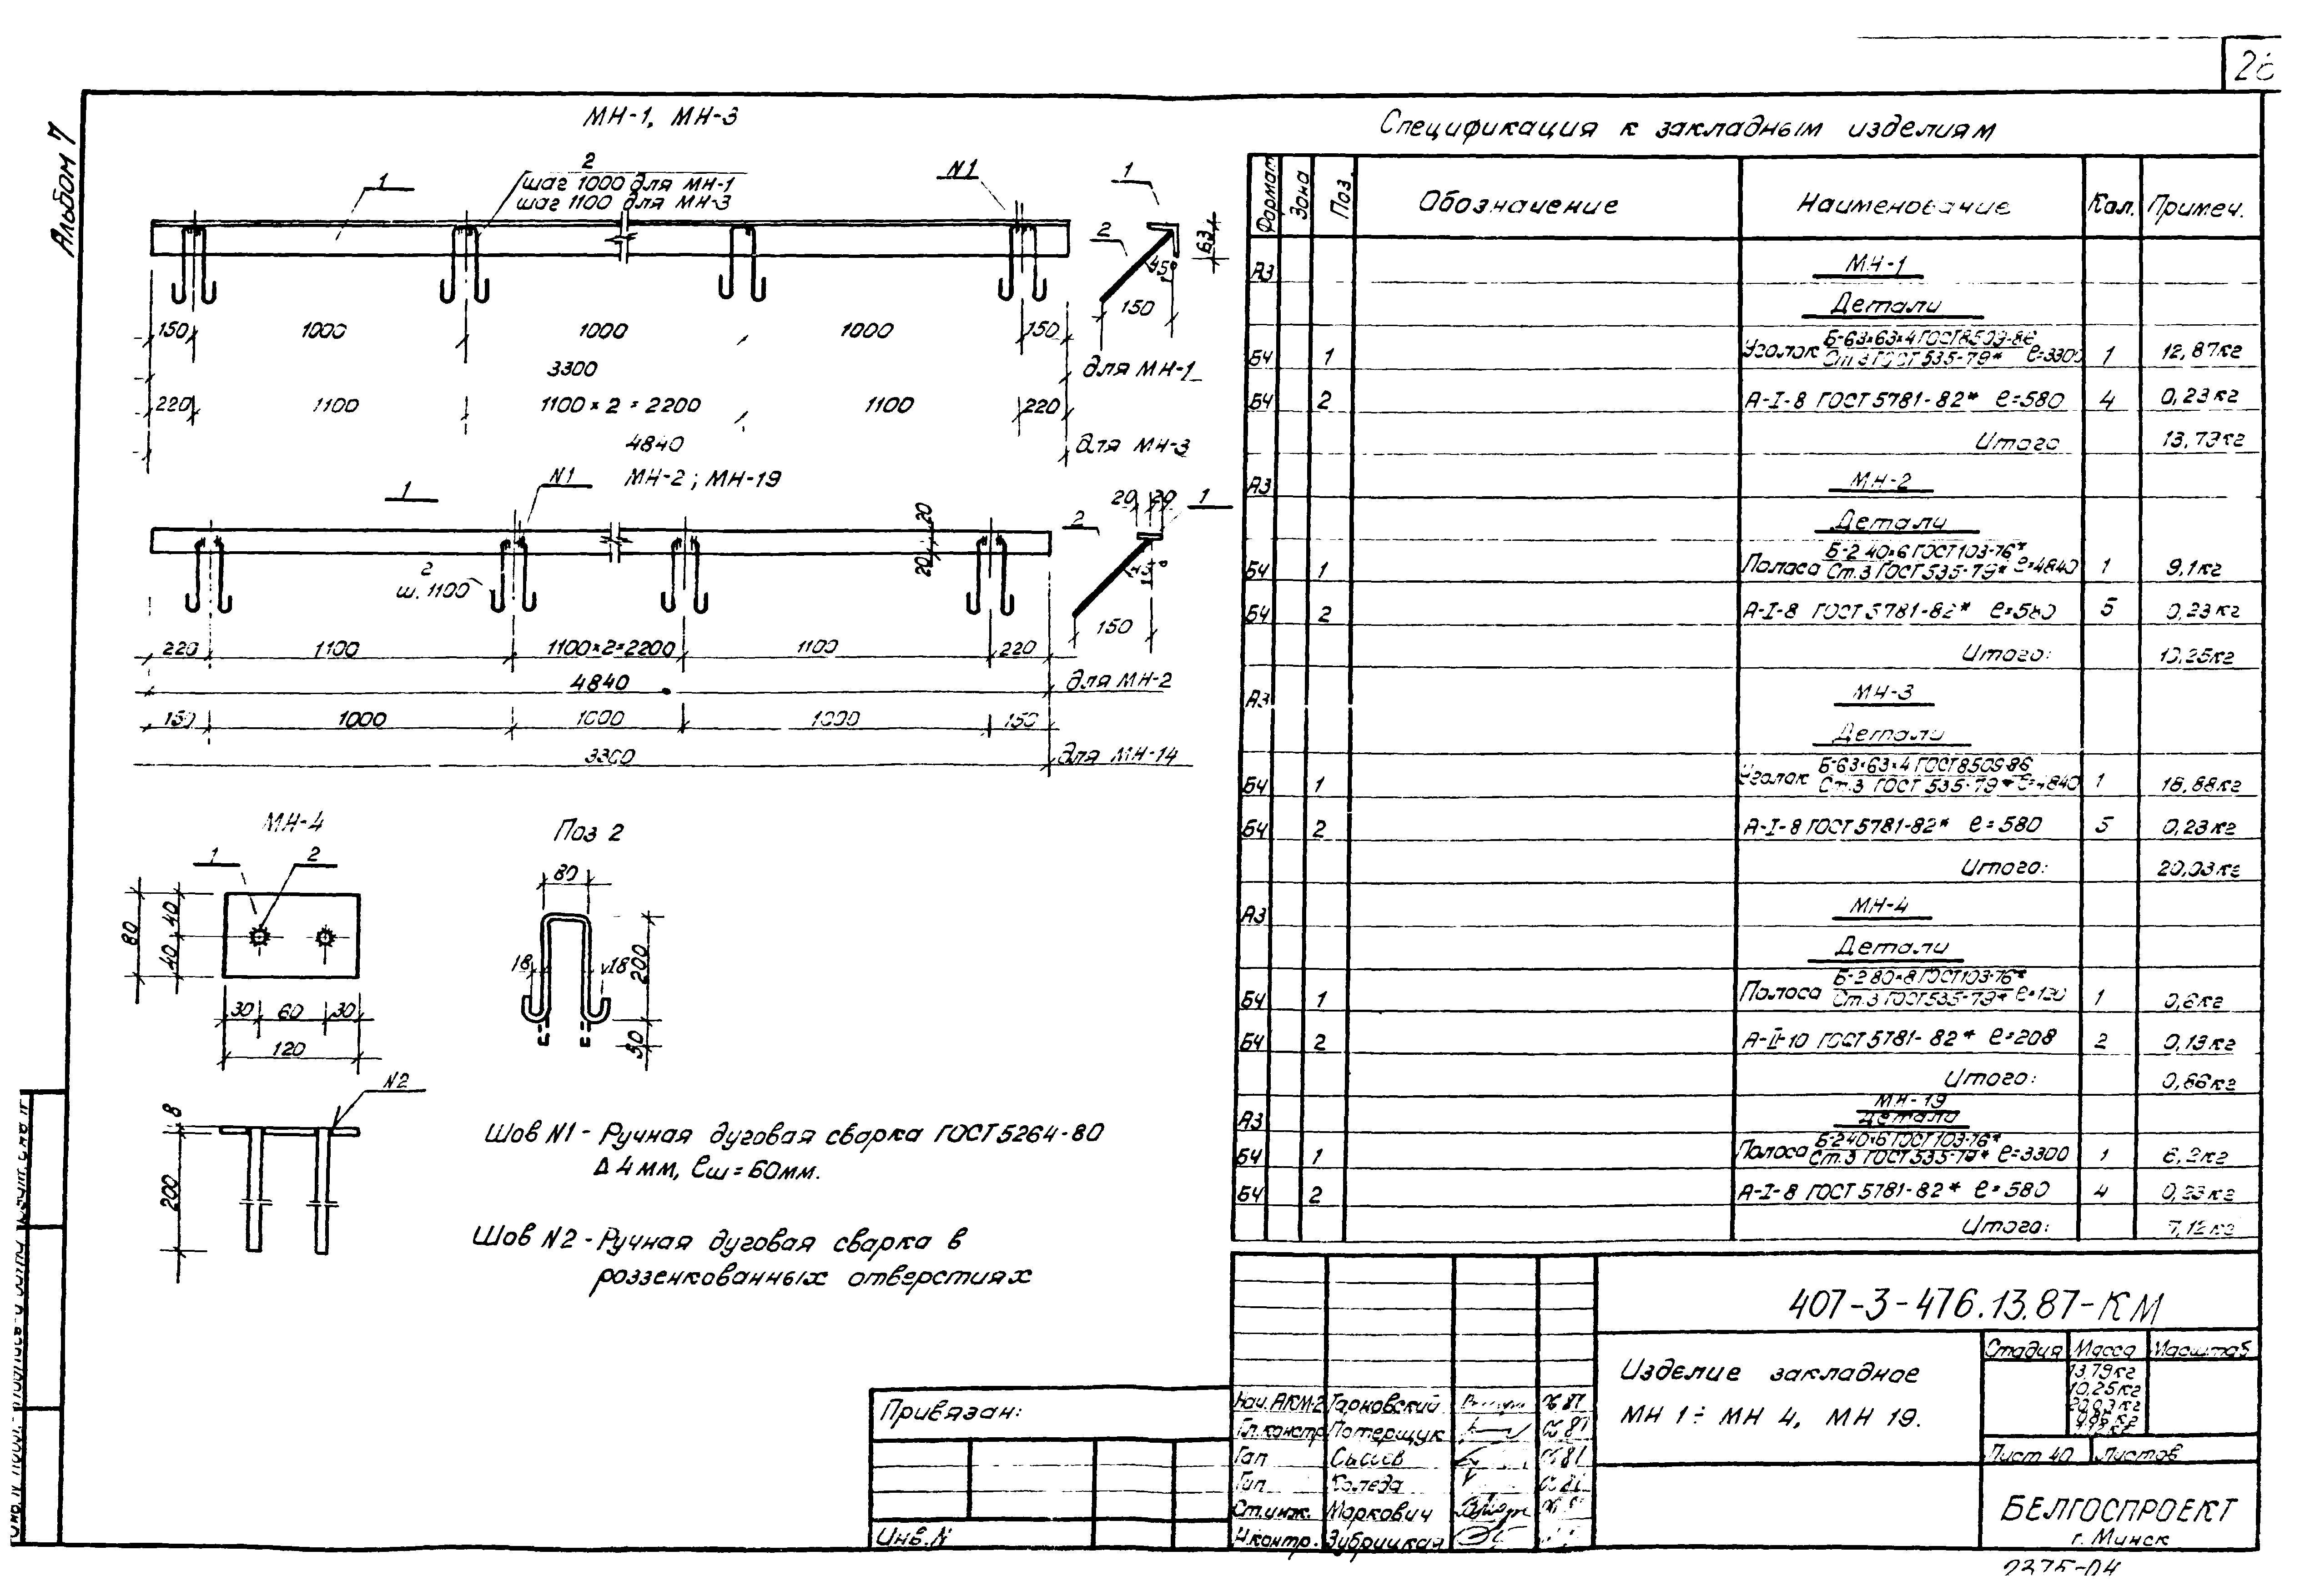 Альбом 7
МН-1, МН-3
1
2
шаг 1000 для МН-1
шаг 1100 для МН-3
N1
1
2
63
45°
150
150 1000 1000 1000 150
3300
для МН-1
220 1100 1100×2=2200 1100 220
4840
для МН-3
МН-2; МН-19
1
N1
20
20
2
ш. 1100
20 20
1
2
45°
150
220 1100 1100×2=2200 1100 220
4840
для МН-2
150 1000 1000 1000 150
3300
для МН-14
МН-4
1 2
80
40 40
30 60 30
120
N2
8
200
Поз 2
80
18 18
200
50
Шов N1 - Ручная дуговая сварка ГОСТ 5264-80
Δ 4 мм, ℓш = 60мм.
Шов N2 - Ручная дуговая сварка в
роззенкованных отверстиях
Спецификация к закладным изделиям
Формат Зона Поз. Обозначение Наименование Кол. Примеч.
А3 МН-1
Детали
Б4 1 Уголок Б-63×63×4 ГОСТ 8509-86 Ст.3 ГОСТ 535-79* ℓ=3300 1 12,87кг
Б4 2 А-I-8 ГОСТ 5781-82* ℓ=580 4 0,23кг
Итого 13,79кг
А3 МН-2
Детали
Б4 1 Полоса Б-2 40×6 ГОСТ 103-76* Ст.3 ГОСТ 535-79* ℓ=4840 1 9,1кг
Б4 2 А-I-8 ГОСТ 5781-82* ℓ=580 5 0,23кг
Итого: 10,25кг
А3 МН-3
Детали
Б4 1 Уголок Б-63×63×4 ГОСТ 8509-86 Ст.3 ГОСТ 535-79* ℓ=4840 1 18,88кг
Б4 2 А-I-8 ГОСТ 5781-82* ℓ=580 5 0,23кг
Итого: 20,03кг
А3 МН-4
Детали
Б4 1 Полоса Б-2 80×8 ГОСТ 103-76* Ст.3 ГОСТ 535-79* 1 0,6кг
Б4 2 А-II-10 ГОСТ 5781-82* ℓ=208 2 0,13кг
Итого: 0,86кг
А3 МН-19
Детали
Б4 1 Полоса Б-2 40×6 ГОСТ 103-76* Ст.3 ГОСТ 535-79* ℓ=3300 1 6,2кг
Б4 2 А-I-8 ГОСТ 5781-82* ℓ=580 4 0,23кг
Итого: 7,12кг
407-3-476.13.87-КМ
Изделие закладное
МН 1÷МН 4, МН 19.
Стадия Масса Масштаб
13,79кг
10,25кг
20,03кг
Лист 40 Листов
БЕЛГОСПРОЕКТ
г. Минск
Привязан:
Инв.N
Нач.АКМ-2 Тарновский
Гл.констр. Потерщук
Гап Сысоев
Гип Коледа
Ст.инж. Маркович
Н.контр. Зубрицкая
2375-04